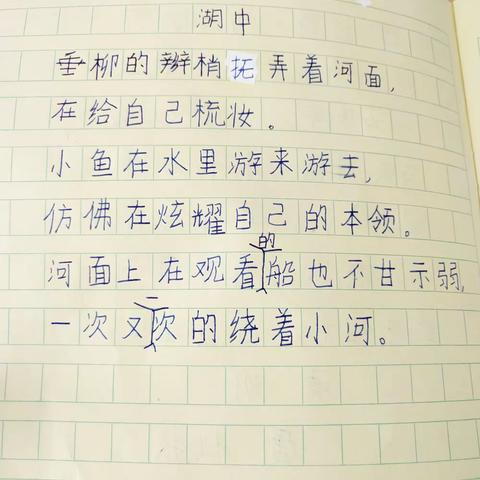 湖中
垂柳的辫梢抚弄着河面,
在给自己梳妆。
小鱼在水里游来游去,
仿佛在炫耀自己的本领。
河面上在观看的船也不甘示弱,
一次又一次的绕着小河。